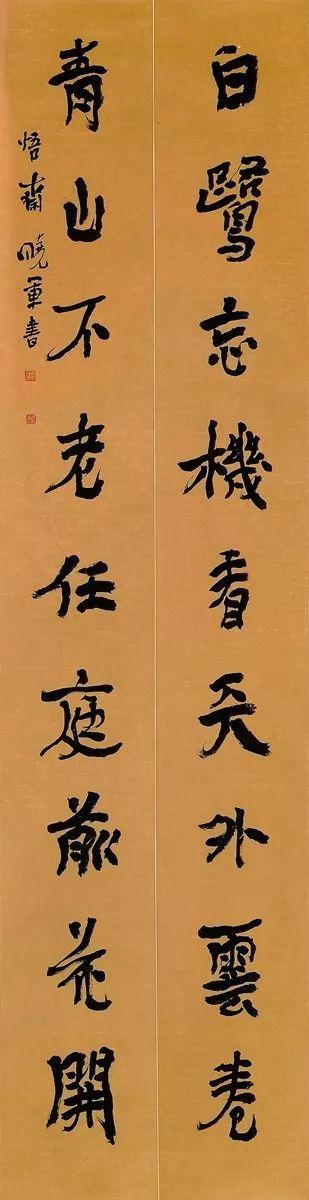 白鹭忘機看天外雲卷
青山不老任庭前花開
悟齋曉軍書